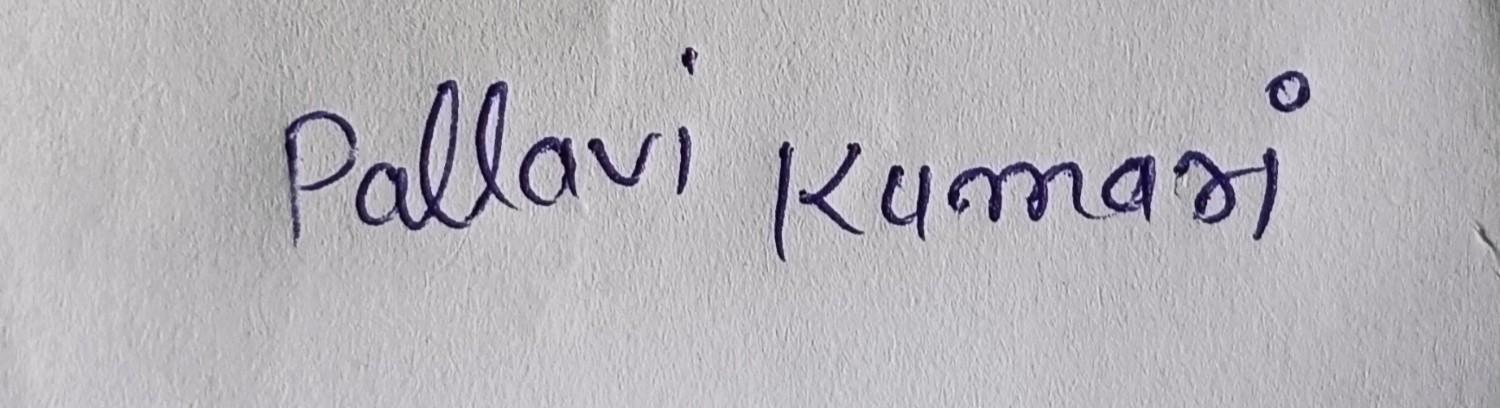 Pallavi Kumari